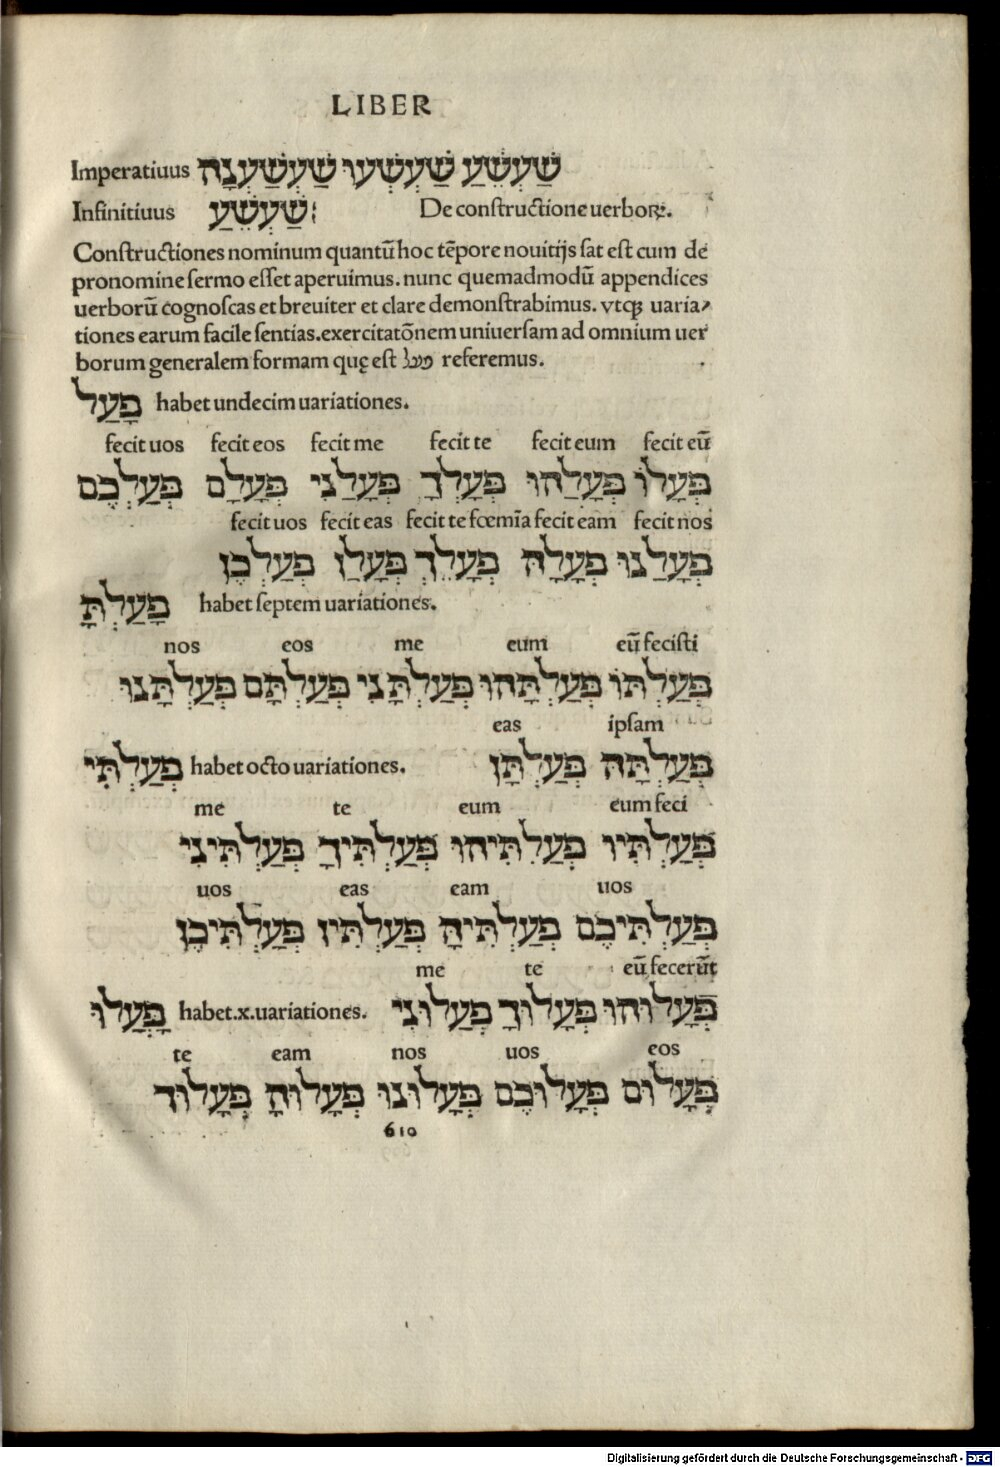 LIBER
Imperatiuus שַׁעְשֵׁעַ שַׁעְשְׁעוּ שַׁעְשַׁעְנָה
Infinitiuus שַׁעְשֵׁעַ: De conſtructione uerboꝝ.
Conſtructiones nominum quantū hoc tēpore nouitijs ſat eſt cum de
pronomine ſermo eſſet aperuimus. nunc quemadmodū appendices
uerborū cognoſcas et breuiter et clare demonſtrabimus. vtqꝫ uaria⸗
tiones earum facile ſentias. exercitatōnem uniuerſam ad omnium uer
borum generalem formam quę eſt פעל referemus.
פָּעַל habet undecim uariationes.
fecit uos fecit eos fecit me fecit te fecit eum fecit eū
פְּעָלוֹ פְּעָלַהוּ פְּעָלְךָ פְּעָלַנִי פְּעָלַם פְּעַלְכֶם
fecit uos fecit eas fecit te fœmīa fecit eam fecit nos
פְּעָלַנוּ פְּעָלָהּ פְּעָלֵךְ פְּעָלַן פְּעַלְכֶן
פָּעַלְתָּ habet ſeptem uariationes.
nos eos me eum eū feciſti
פְּעַלְתּוֹ פְּעַלְתָּהוּ פְּעַלְתָּנִי פְּעַלְתָּם פְּעַלְתָּנוּ
eas ipſam
פְּעַלְתָּהּ פְּעַלְתָּן
פְּעַלְתִּי habet octo uariationes.
me te eum eum feci
פְּעַלְתִּיו פְּעַלְתִּיהוּ פְּעַלְתִּיךָ פְּעַלְתִּינִי
uos eas eam uos
פְּעַלְתִּיכֶם פְּעַלְתִּיהָ פְּעַלְתִּין פְּעַלְתִּיכֶן
me te eū fecerūt
פְּעָלוּהוּ פְּעָלוּךָ פְּעַלוּנִי
פָּעֲלוּ habet .x. uariationes.
te eam nos uos eos
פְּעָלוּם פְּעָלוּכֶם פְּעָלוּנוּ פְּעָלוּהָ פְּעָלוּךְ
610
Digitalisierung gefördert durch die Deutsche Forschungsgemeinschaft - DFG